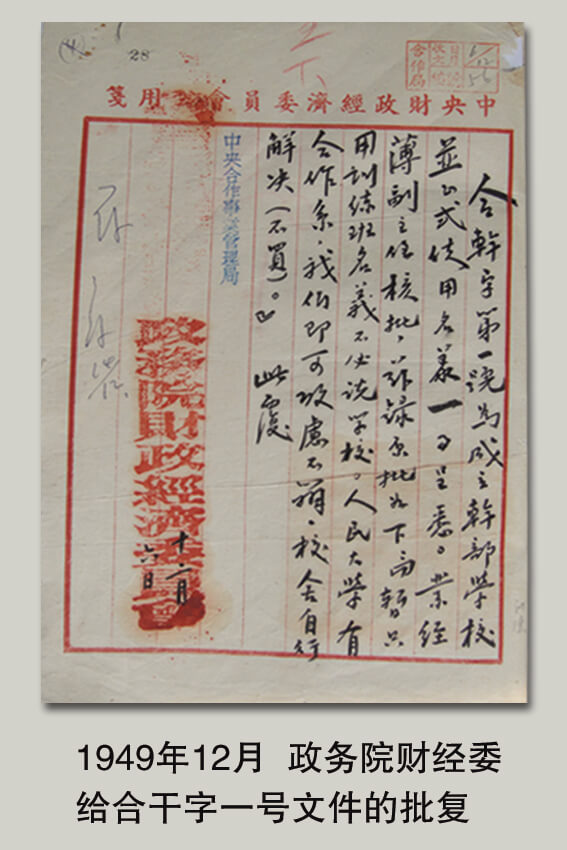 28
中央財政經濟委員會用箋
合幹字第一號為成立幹部學校
並正式使用名義一事呈悉。業經
薄副主任核批，茲錄原批如下「暫只
用訓練班名義不必說學校。人民大學有
合作系，我們即可考慮不辦，校舍自行
解決（不買）。」此覆
中央合作事業管理局
政務院財政經濟委員會
十二月
六日
1949年12月 政务院财经委
给合干字一号文件的批复